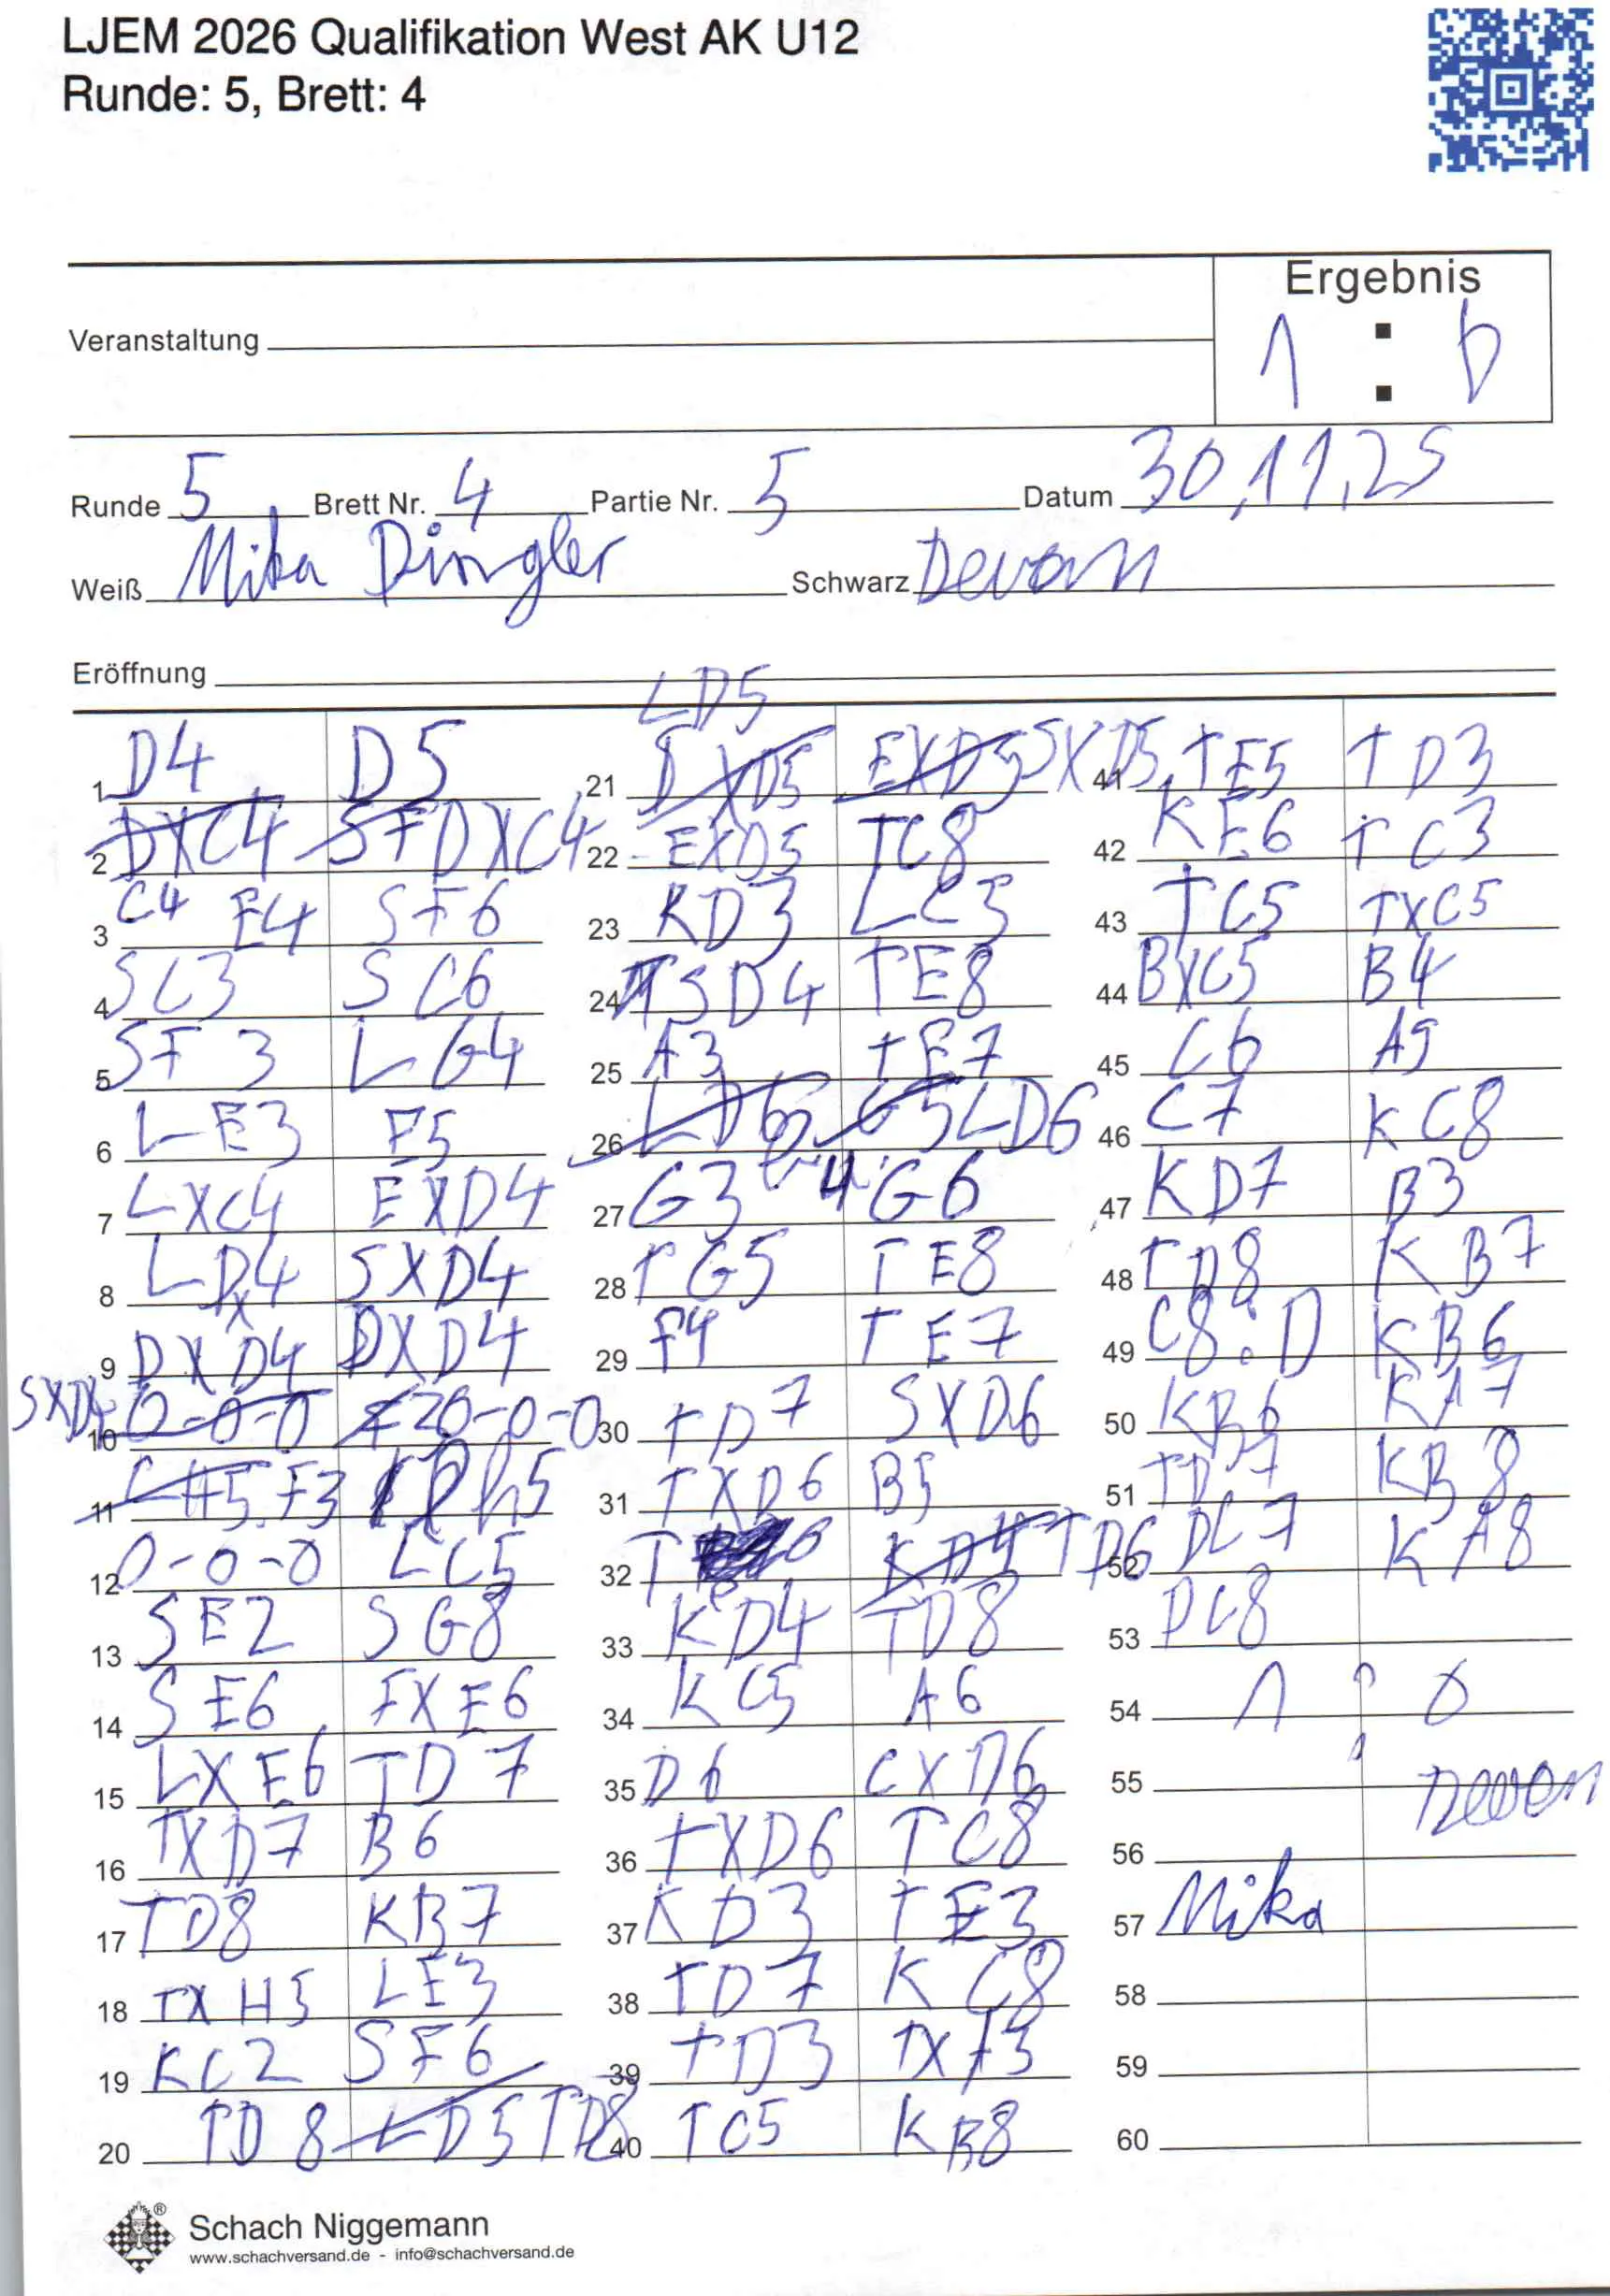 LJEM 2026 Qualifikation West AK U12
Runde: 5, Brett: 4
Ergebnis
Veranstaltung
1 : 0
Runde 5 Brett Nr. 4 Partie Nr. 5 Datum 30,11,25
Weiß Mika Dingler Schwarz Devon
Eröffnung
LD5
1 D4 D5
2 DXC4 SF DXC4
3 C4 E4 SF6
4 SC3 SC6
5 SF3 LG4
6 LE3 E5
7 LXC4 EXD4
8 LXD4 SXD4
9 DXD4 DXD4
10 SXD4 0-0-0 0-0-0
11 LH5 F3 h5
12 0-0-0 LC5
13 SE2 SG8
14 SE6 FXE6
15 LXE6 TD7
16 TXD7 B6
17 TD8 KB7
18 TXH5 LE3
19 KC2 SF6
20 TD8 LD5 TD8
21 XD5 EXD5 SXD5
22 EXD5 TC8
23 KD3 LC5
24 SD4 TE8
25 A3 TE7
26 LD6 G5 LD6
27 G3 G6
28 TG5 TE8
29 F4 TE7
30 TD7 SXD6
31 TXD6 B5
32 T KD4 TD6
33 KD4 TD8
34 KC5 A6
35 D6 CXD6
36 TXD6 TC8
37 KD3 TE3
38 TD7 KC8
39 TD3 TXF3
40 TC5 KB8
41 TE5 TD3
42 KE6 TC3
43 TC5 TXC5
44 BXC5 B4
45 C6 A5
46 C7 KC8
47 KD7 B3
48 TD8 KB7
49 C8:D KB6
50 KB6 KA7
51 TD7 KB8
52 DC7 KA8
53 DC8
54 1 : 0
55 Devon
56
57 Mika
58
59
60
Schach Niggemann
www.schachversand.de - info@schachversand.de